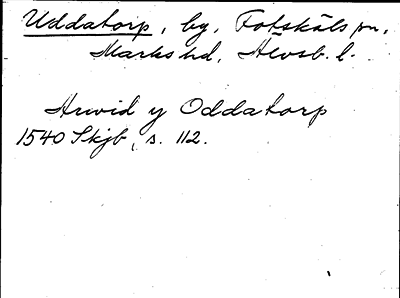 Uddatorp, by, Fotskäls sn,
Marks hd, Älvsb. l.
Arvid y Oddatorp
1540 Skjb, s. 112.